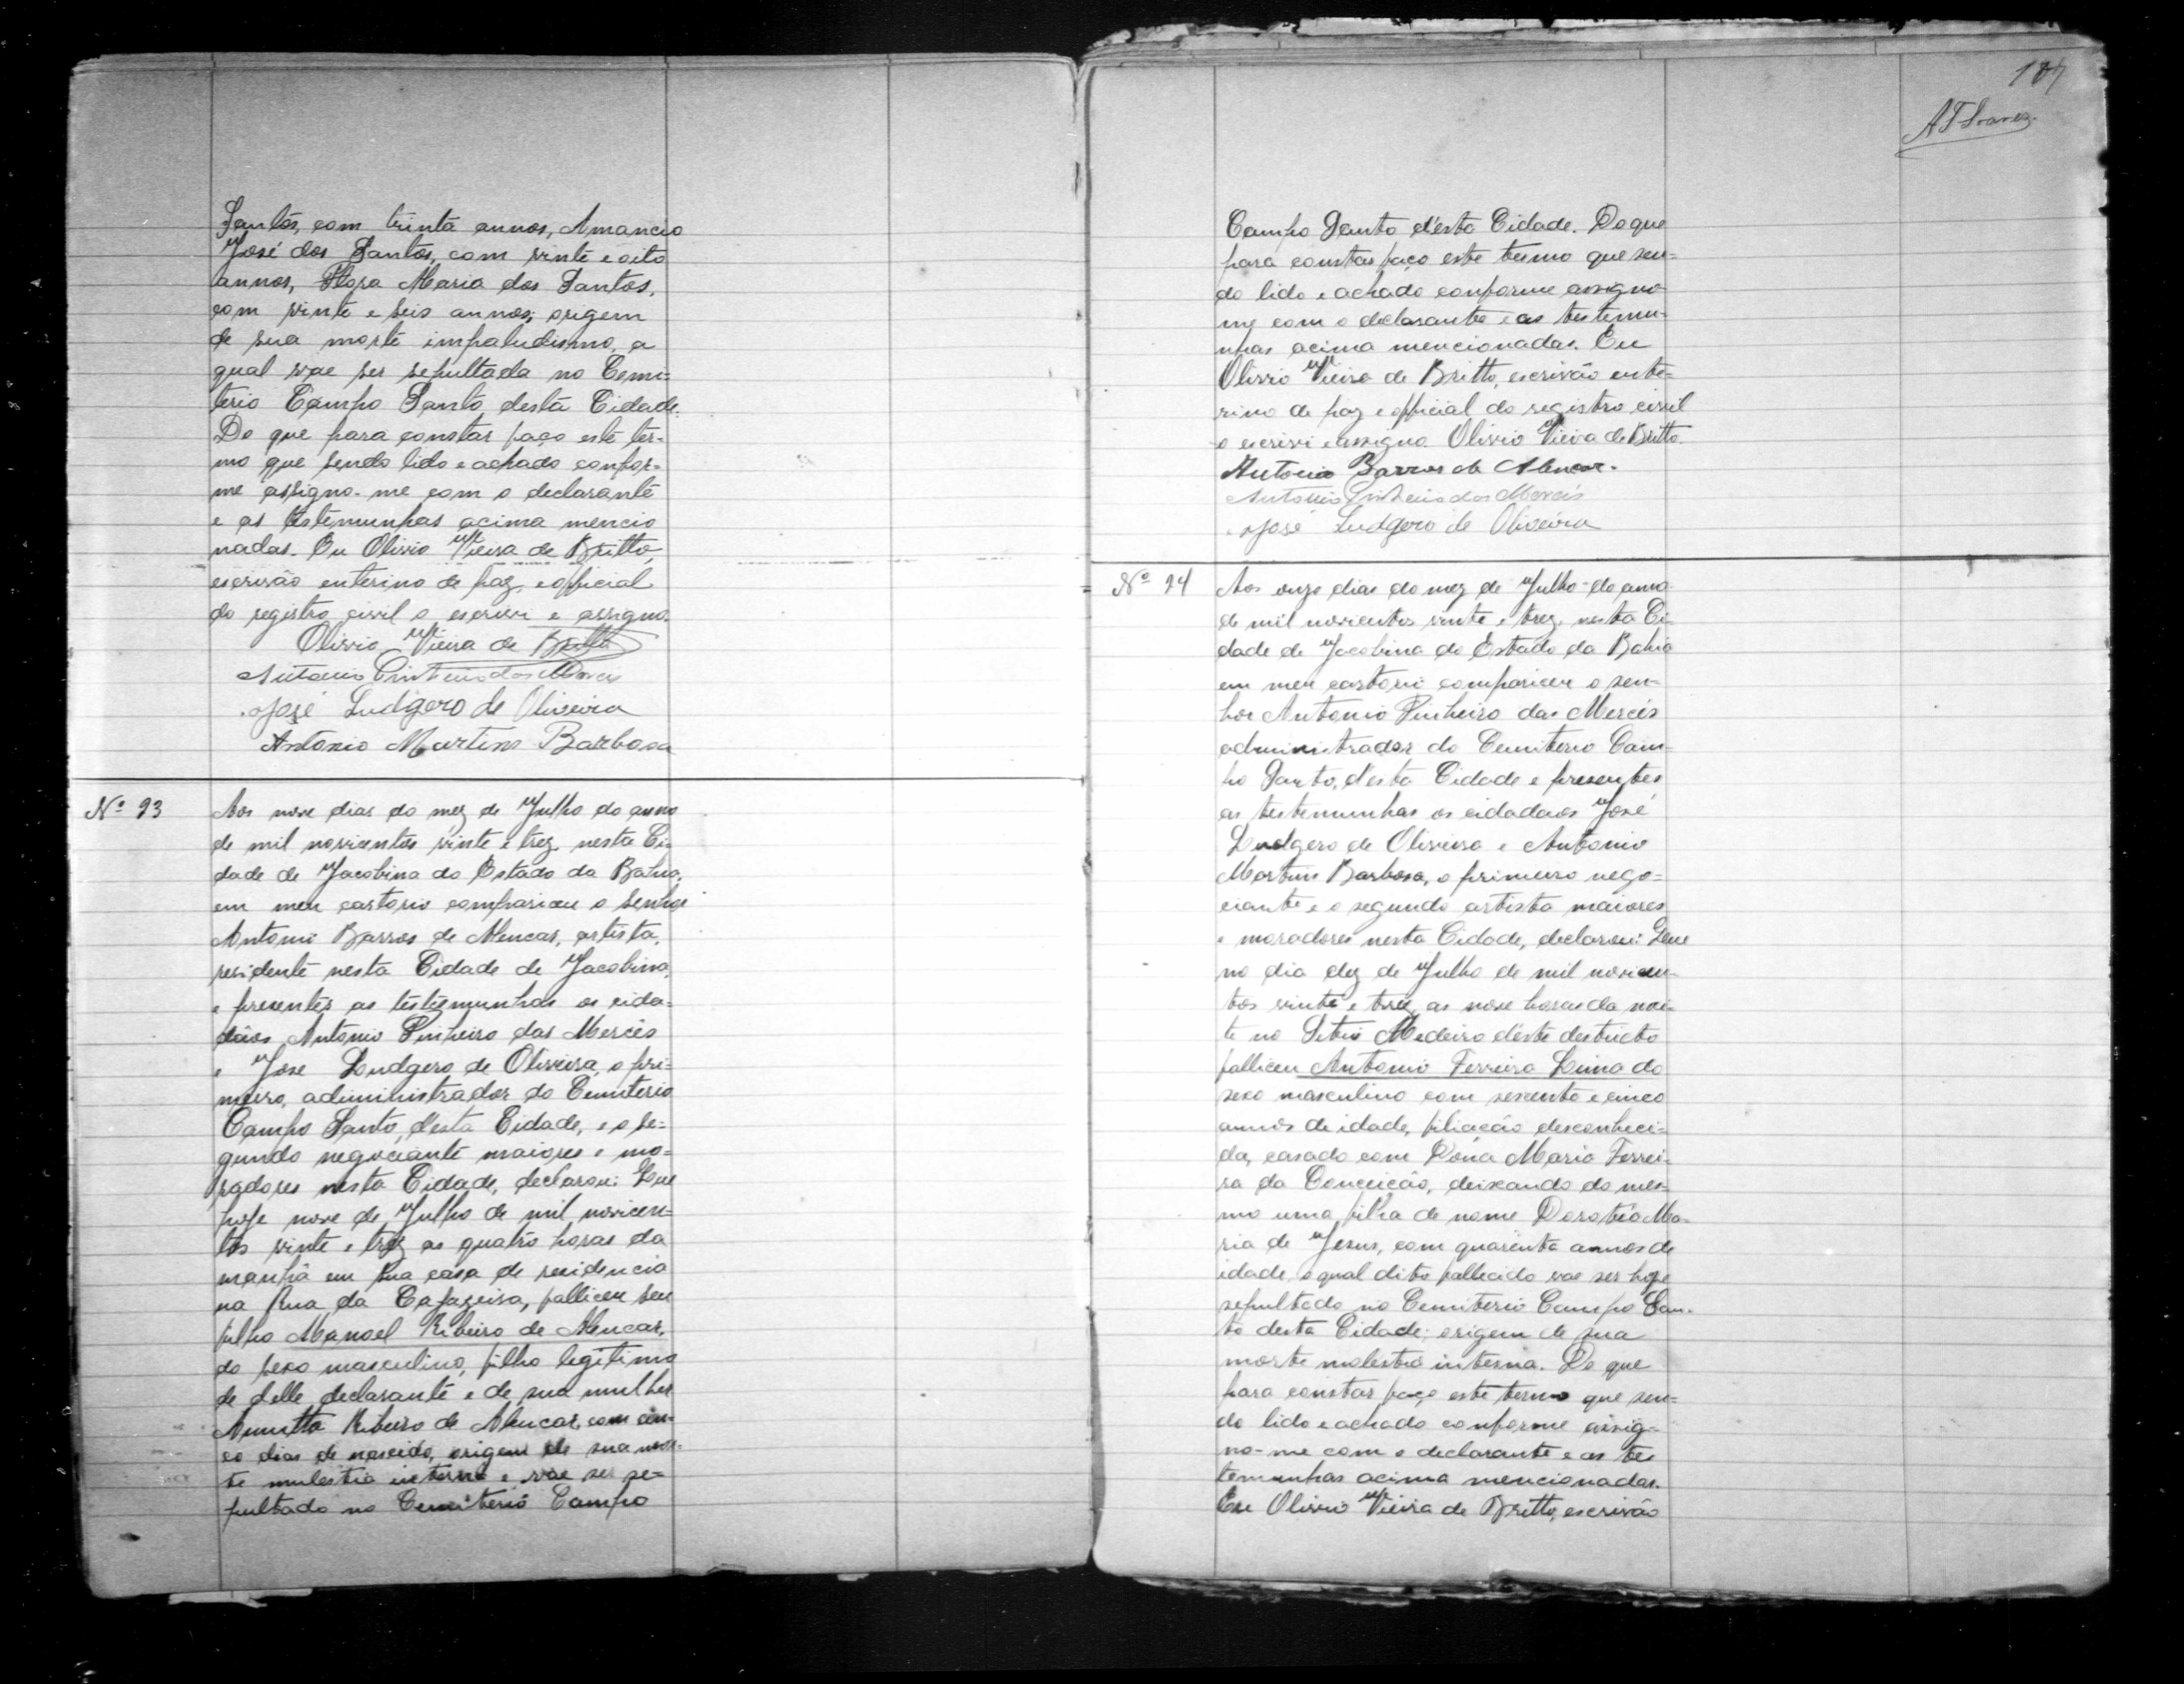 Santos, com trinta annos, Amancio
José dos Santos, com vinte e oito
annos, Maria dos Santos,
com vinte e seis annos; origem
de sua morte impaludismo, a
qual vae ser sepultada no Cemi=
terio Campo Santo desta Cidade.
Do que para constar faço este ter-
mo que sendo lido e achado confor=
me assigno-me com o declarante
e as testemunhas acima mencio
nadas. Eu Olivio Vieira de Britto,
escrivão enterino de paz, e official
do registro civil o escrevi e assigno.
Olivio Vieira de Britto
Antonio Pinheiro das Merces
José Ludgero de Oliveira
Antonio Martins Barbosa
Nº 93
Aos nove dias do mez de Julho do anno
de mil novicentos vinte e trez, nesta Ci-
dade de Jacobina do Estado da Bahia,
em meu cartorio compariceu o Senhor
Antonio Barros de Alencar, artista,
residente nesta Cidade de Jacobina,
e presentes as testemunhas os cida=
dãos Antonio Pinheiro das Mercês
e José Ludgero de Oliveira, o pri-
meiro, administrador do Cemiterio
Campo Santo, desta Cidade, e o se=
gundo negociante maiores e mo=
radores nesta Cidade, declarou: Que
hoje nove de Julho de mil novicen=
tos vinte e trez as quatro horas da
manhã em sua casa de residencia
na Rua da Cajazeira, falliceu seu
filho Manoel Ribeiro de Alencar,
do sexo masculino, filho legitimo
de delle declarante e de sua mulher
Annitta Ribeiro de Alencar, com cin-
co dias de nascido, origem de sua mor-
te mulestia interna e vae ser se=
pultado no Cemiterio Campo
197
A T Soares
Campo Santo d'esta Cidade. Do que
para constar faço este termo que sen=
do lido e achado conforme assigno
me com o declarante e as testemu-
nhas acima mencionadas. Eu
Olivio Vieira de Britto, escrivão ente=
rino de paz e official do registro civil
o escrivi e assigno Olivio Vieira de Britto.
Antonio Barros de Alencar.
Antonio Pinheiro das Mercês
José Ludgero de Oliveira
Nº 94
Aos onze dias do mez de Julho do anno
de mil novicentos vinte e trez, nesta Ci
dade de Jacobina do Estado da Bahia
em meu cartorio compariceu o sen-
hor Antonio Pinheiro das Mercês
administrador do Cemiterio Cam-
po Santo, d'esta Cidade e presentes
as testemunhas os cidadãos José
Ludgero de Oliveira e Antonio
Martins Barbosa, o primeiro nego=
ciante e o segundo artista maiores
e moradores nesta Cidade, declarou: Que
no dia dez de Julho de mil novicen-
tos vinte e trez, as nove horas da noi-
te no Sitio Medeiro d'este destricto
falliceu Antonio Ferreira Lima do
sexo masculino com sessenta e cinco
annos de idade, filiação desconheci=
da, casado com Dona Maria Ferrei-
ra da Conceição, deixando do mes=
mo uma filha de nome Dorotéa Ma-
ria de Jesus, com quarenta annos de
idade, o qual dito fallecido vae ser hoje
sepultado no Cemiterio Campo San-
to desta Cidade; origem de sua
morte molestia interna. Do que
para constar faço este termo que sen=
do lido e achado conforme assig-
no-me com o declarante e as tes
temunhas acima mencionadas.
Eu Olivio Vieira de Britto, escrivão